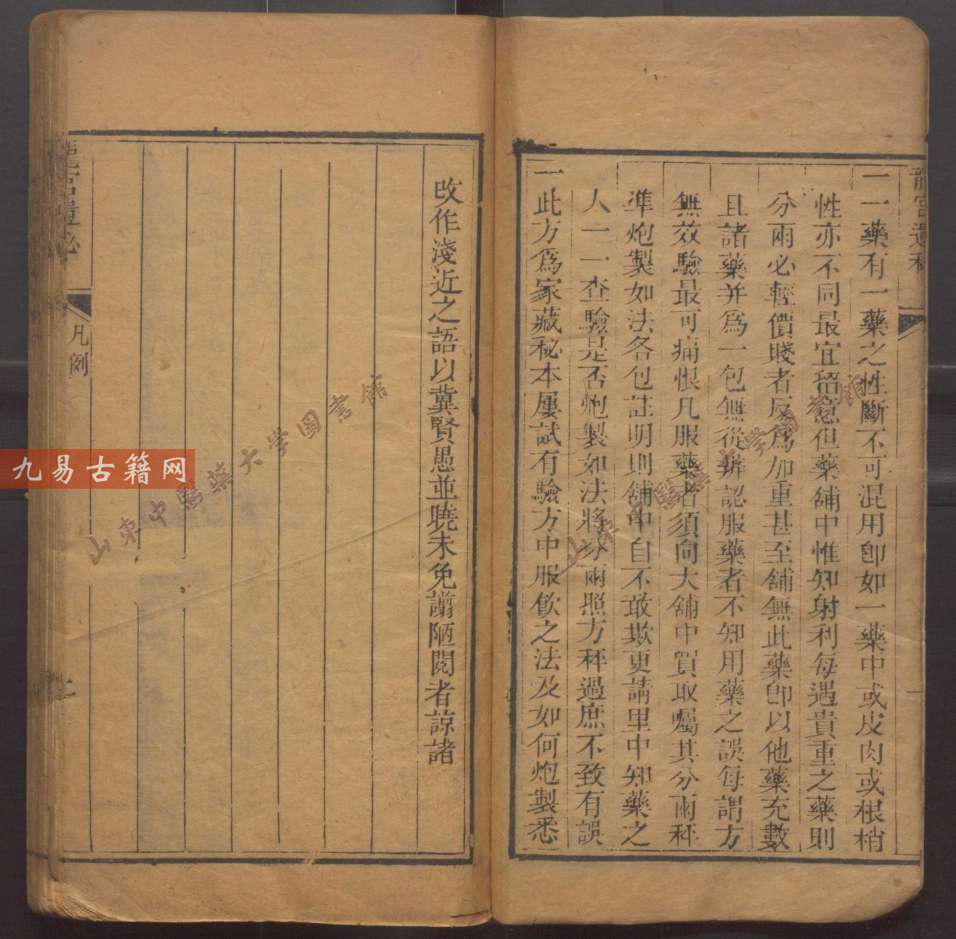 龍宮遺秘
一一藥有一藥之性斷不可混用卽如一藥中或皮肉或根梢
性亦不同最宜留意但藥舖中惟知射利每遇貴重之藥則
分兩必輕價賤者反爲加重甚至舖無此藥卽以他藥充數
且諸藥并爲一包無從辨認服藥者不知用藥之誤每謂方
無效驗最可痛恨凡服藥者須向大舖中買取囑其分兩秤
準炮製如法各包註明則舖中自不敢欺更請里中知藥之
人一一查驗是否炮製如法將分兩照方秤過庶不致有誤
一此方爲家藏秘本屢試有驗方中服飲之法及如何炮製悉
改作淺近之語以冀賢愚並曉未免譾陋閱者諒諸
凡例
九易古籍网
山東中醫藥大学图書館